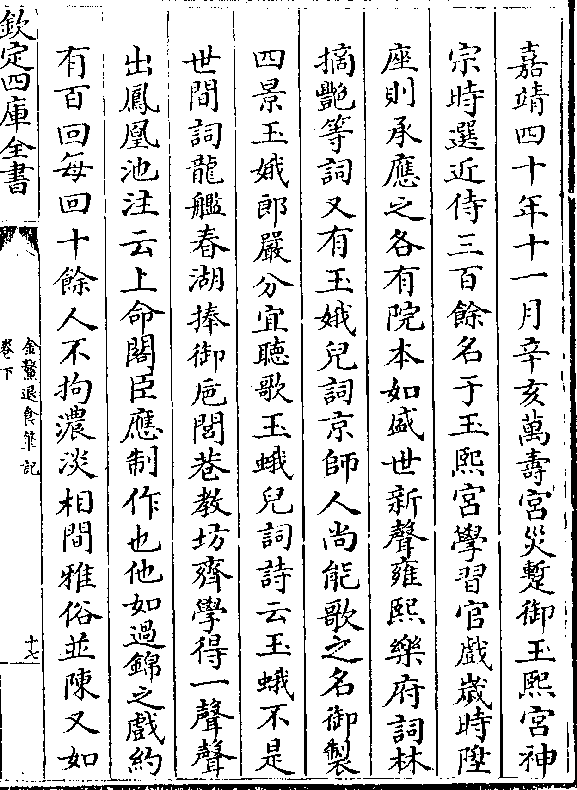 嘉靖四十年十一月辛亥萬壽宮災蹔御玉熙宮神
宗時選近侍三百餘名于玉熙宮學習官戲歲時陞
座則承應之各有院本如盛世新聲雍熙樂府詞林
摘艷等詞又有玉娥兒詞京師人尚能歌之名御製
四景玉娥郎嚴分宜聽歌玉蛾兒詞詩云玉蛾不是
世間詞龍艦春湖捧御巵閭巷教坊齊學得一聲聲
出鳳凰池注云上命閣臣應制作也他如過錦之戲約
有百回每回十餘人不拘濃淡相間雅俗並陳又如
欽定四庫全書
金鰲退食筆記
卷下
十七